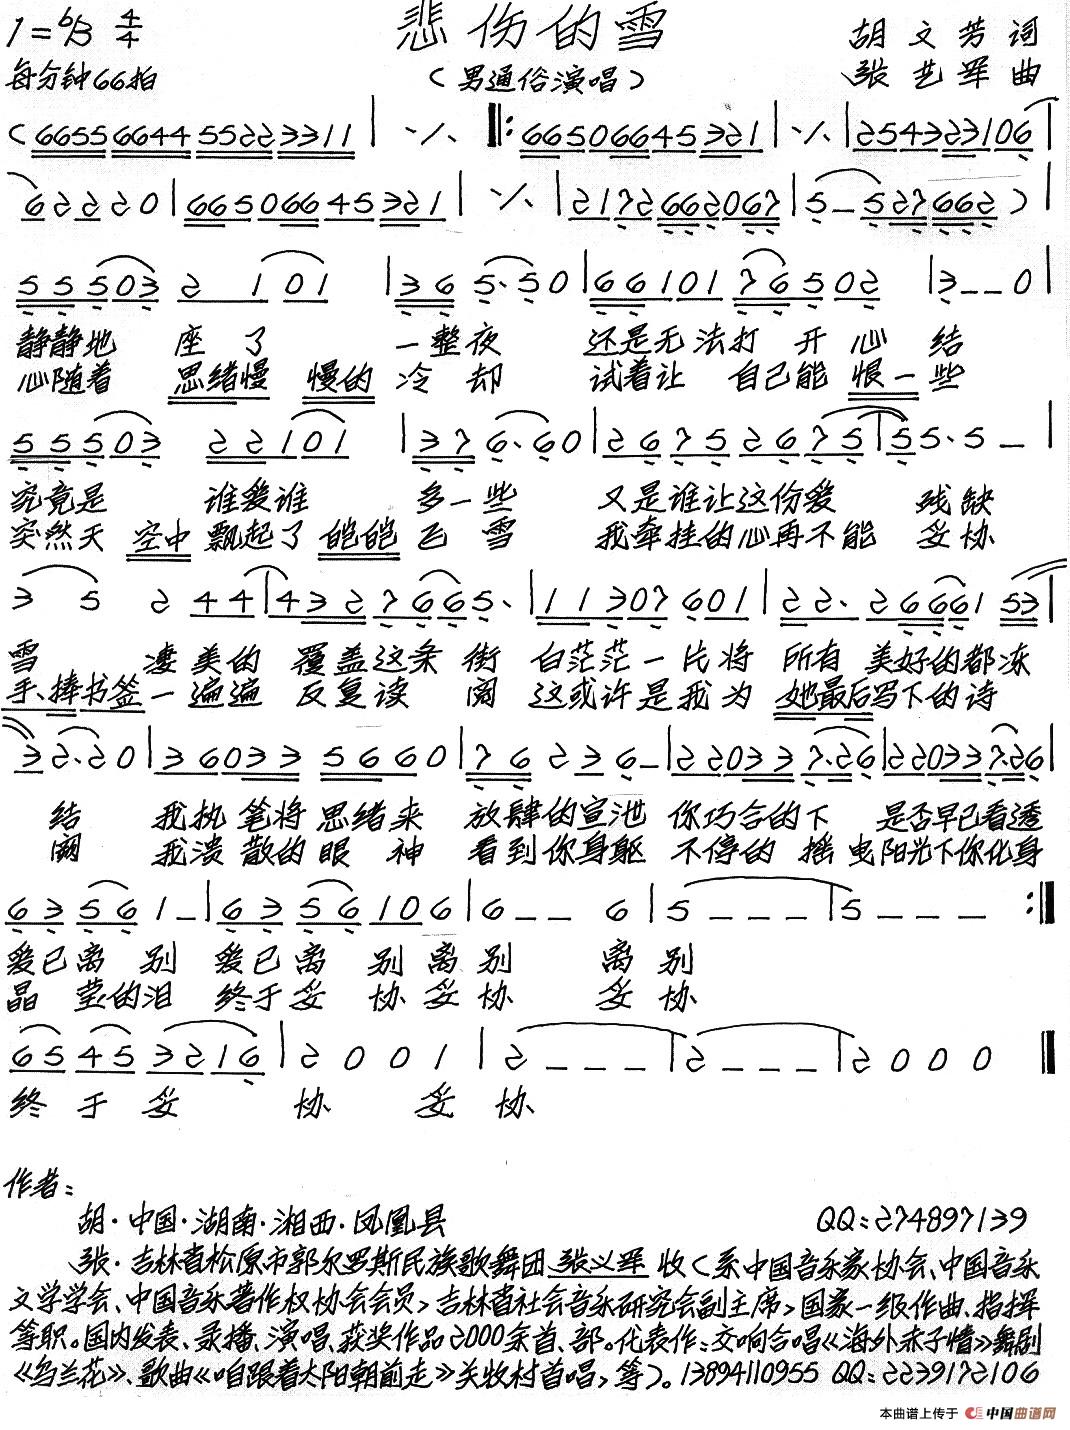 1=♭B 4/4 悲伤的雪 胡文芳词
每分钟66拍 （男通俗演唱） 张艺军曲
(6655 6644 5522 3311 | ·/· ‖: 6650 6645 321 | ·/· | 25432 3106 |
6 2 2 2 0 | 6650 6645 321 | ·/· | 2172 662067 | 5 – 527 662 ) |
5 5 503 2 1 01 | 3 6 5· 50 | 66 101 76 502 | 3 – – 0 |
静静地 座了 一整夜 还是无法打开心结
心随着 思绪慢慢的冷却 试着让 自己能恨一些
5 5 503 2 2 101 | 3 7 6· 60 | 26 75 26 75 | 5 5· 5 – |
究竟是 谁爱谁 多一些 又是谁让这份爱 残缺
突然天空中飘起了皑皑飞雪 我牵挂的心再不能 妥协
3 5 2 44 | 432 766 5· | 1 1 307 601 | 2 2· 26661 53 |
雪 凄美的 覆盖这条街 白茫茫一片将 所有 美好的都冻
手捧书签一遍遍 反复读阅 这或许是我为 她最后写下的诗
3 2· 20 | 36033 5660 | 7 6 2 3 6 – | 22033 7·26 | 22033 7·26 |
结 我执笔将思绪来 放肆的宣泄 你巧合的下 是否早已看透
阙 我涣散的眼神 看到你身躯 不停的摇曳阳光下你化身
63 56 1 – | 63 56 106 | 6 – – 6 | 5 – – – | 5 – – – :‖
爱已离别 爱已离别离别 离别
晶莹的泪 终于妥协妥协 妥协
65 45 32 16 | 2 0 0 1 | 2 – – – | 2 – – – | 2 0 0 0 ‖
终于妥 协 妥协
作者：
胡·中国·湖南·湘西·凤凰县 QQ：274897139
张·吉林省松原市郭尔罗斯民族歌舞团 张义军 收（系中国音乐家协会、中国音乐
文学学会、中国音乐著作权协会会员，吉林省社会音乐研究会副主席，国家一级作曲、指挥
等职。国内发表、录播、演唱、获奖作品2000余首、部。代表作：交响合唱《海外赤子情》舞剧
《乌兰花》、歌曲《咱跟着太阳朝前走》关牧村首唱，等）。13894110955 QQ：2239172106
本曲谱上传于 中国曲谱网